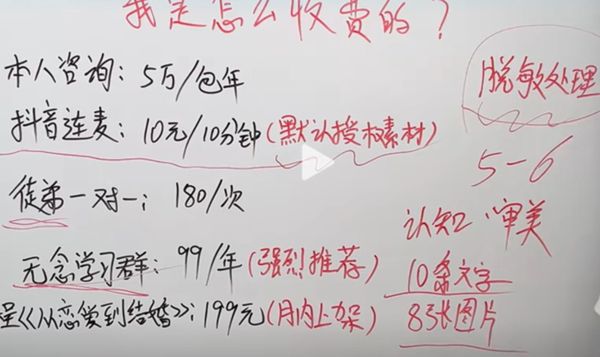 我是怎么收费的？
本人咨询：5万/包年
抖音连麦：10元/10分钟(默认授权素材)
徒弟一对一：180/次
无念学习群：99/年(强烈推荐)
程《从恋爱到结婚》：199元(月内上架)
脱敏处理
5-6
认知 审美
10条文字
8张图片